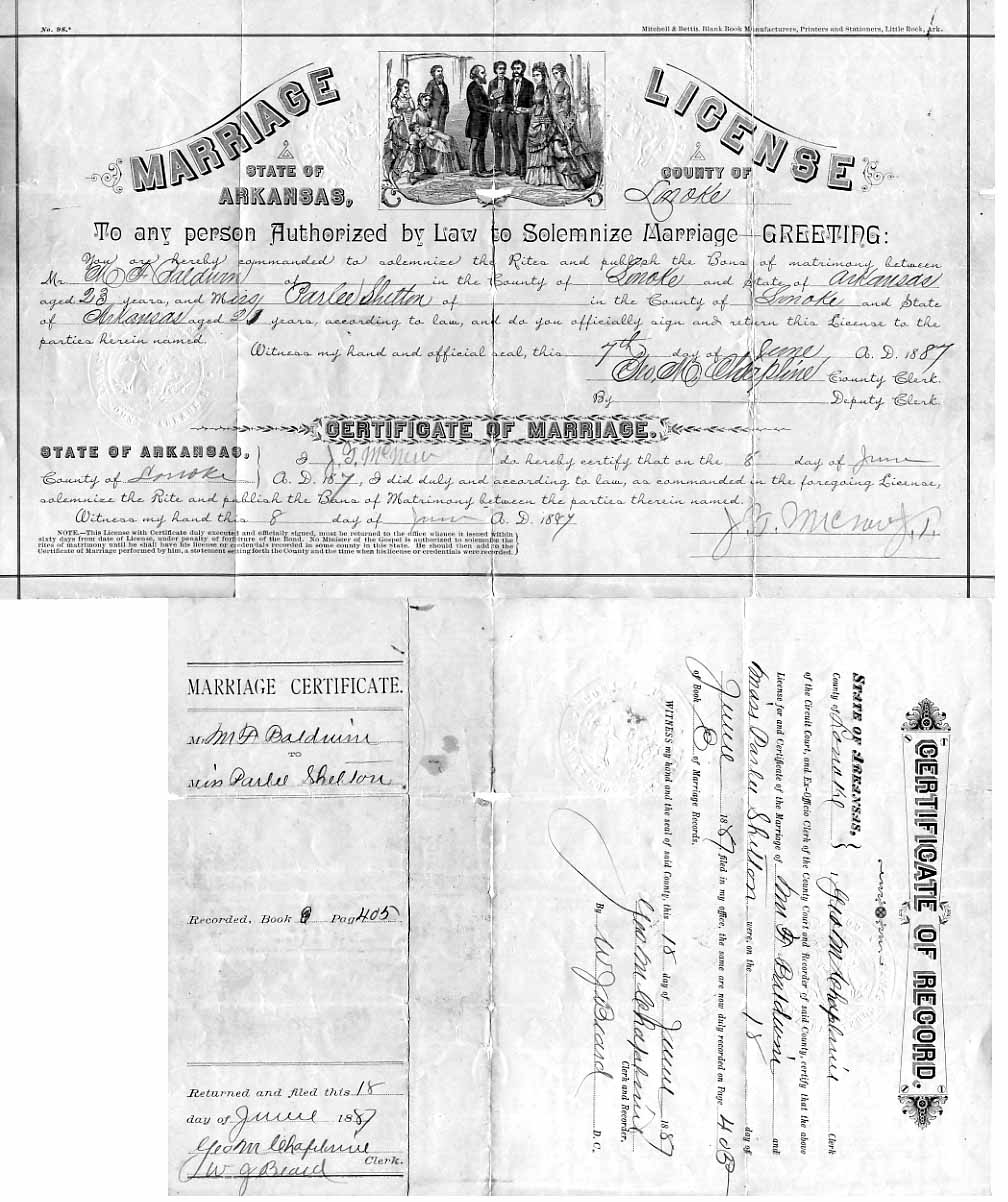 No. 98.*
Mitchell & Bettis, Blank Book Manufacturers, Printers and Stationers, Little Rock, Ark.
MARRIAGE LICENSE
STATE OF ARKANSAS,
COUNTY OF Lonoke
To any person Authorized by Law to Solemnize Marriage—GREETING:
You are hereby commanded to solemnize the Rites and publish the Bans of matrimony between
Mr. M F Baldwin of in the County of Lonoke and State of Arkansas
aged 23 years, and Miss Parlee Shelton of in the County of Lonoke and State
of Arkansas aged 21 years, according to law, and do you officially sign and return this License to the
parties herein named.
Witness my hand and official seal, this 7th day of June A. D. 1887
Geo. M. Chapline County Clerk.
By Deputy Clerk.
CERTIFICATE OF MARRIAGE.
STATE OF ARKANSAS,
County of Lonoke
I J. F. McNew do hereby certify that on the 8 day of June
A. D. 1887, I did duly and according to law, as commanded in the foregoing License,
solemnize the Rite and publish the Bans of Matrimony between the parties therein named.
Witness my hand this 8 day of June A. D. 1887
J. F. McNew J. P.
NOTE.—This License with Certificate duly executed and officially signed, must be returned to the office whence it issued within
sixty days from date of License, under penalty of forfeiture of the Bond. No Minister of the Gospel is authorized to solemnize the
rites of matrimony until he shall have his license or credentials recorded in some county in this State. He should then add to the
Certificate of Marriage performed by him, a statement setting forth the County and the time when his license or credentials were recorded.
MARRIAGE CERTIFICATE.
Mr M F Baldwin
TO
Miss Parlee Shelton
Recorded, Book Page 405
Returned and filed this 18
day of June 1887
Geo M Chapline
Clerk.
W J Beard
CERTIFICATE OF RECORD.
STATE OF ARKANSAS,
County of Lonoke
I, Geo M Chapline Clerk
of the Circuit Court, and Ex-Officio Clerk of the County Court and Recorder of said County, certify that the above
License for and Certificate of the Marriage of Mr F Baldwin and
Miss Parlee Shelton were, on the 18 day of
June 1887, filed in my office, the same are now duly recorded on Page 405
of Book of Marriage Records.
WITNESS my hand and the seal of said County, this 18 day of June 1887
Geo M Chapline
Clerk and Recorder.
By W J Beard D. C.